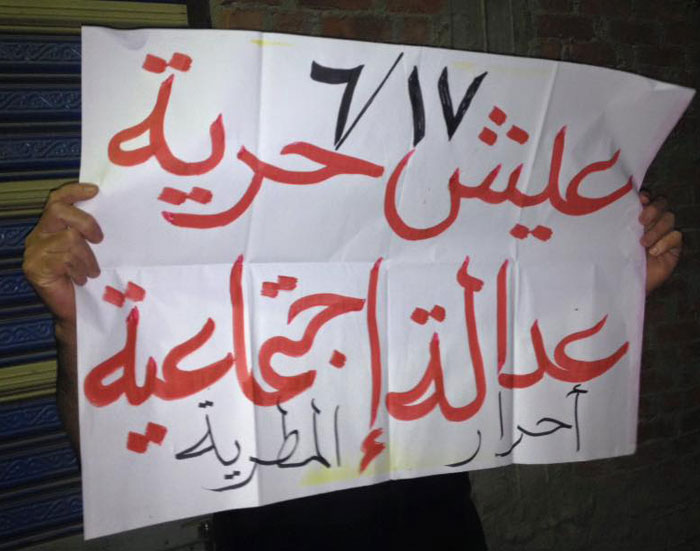 ٦/١٧
عيش حرية
عدالة إجتماعية
أحرار المطرية